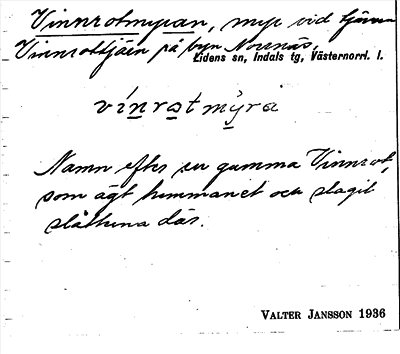 Vinnrotmyran, myr vid tjärnen
Vinnrottjäen på byn Norrnäs,
Lidens sn, Indals tg, Västernorrl. l.
vinrotmyra
Namn efter en gumma Vinnrot,
som ägt hemmanet och slagit
slåtterna där.
VALTER JANSSON 1936